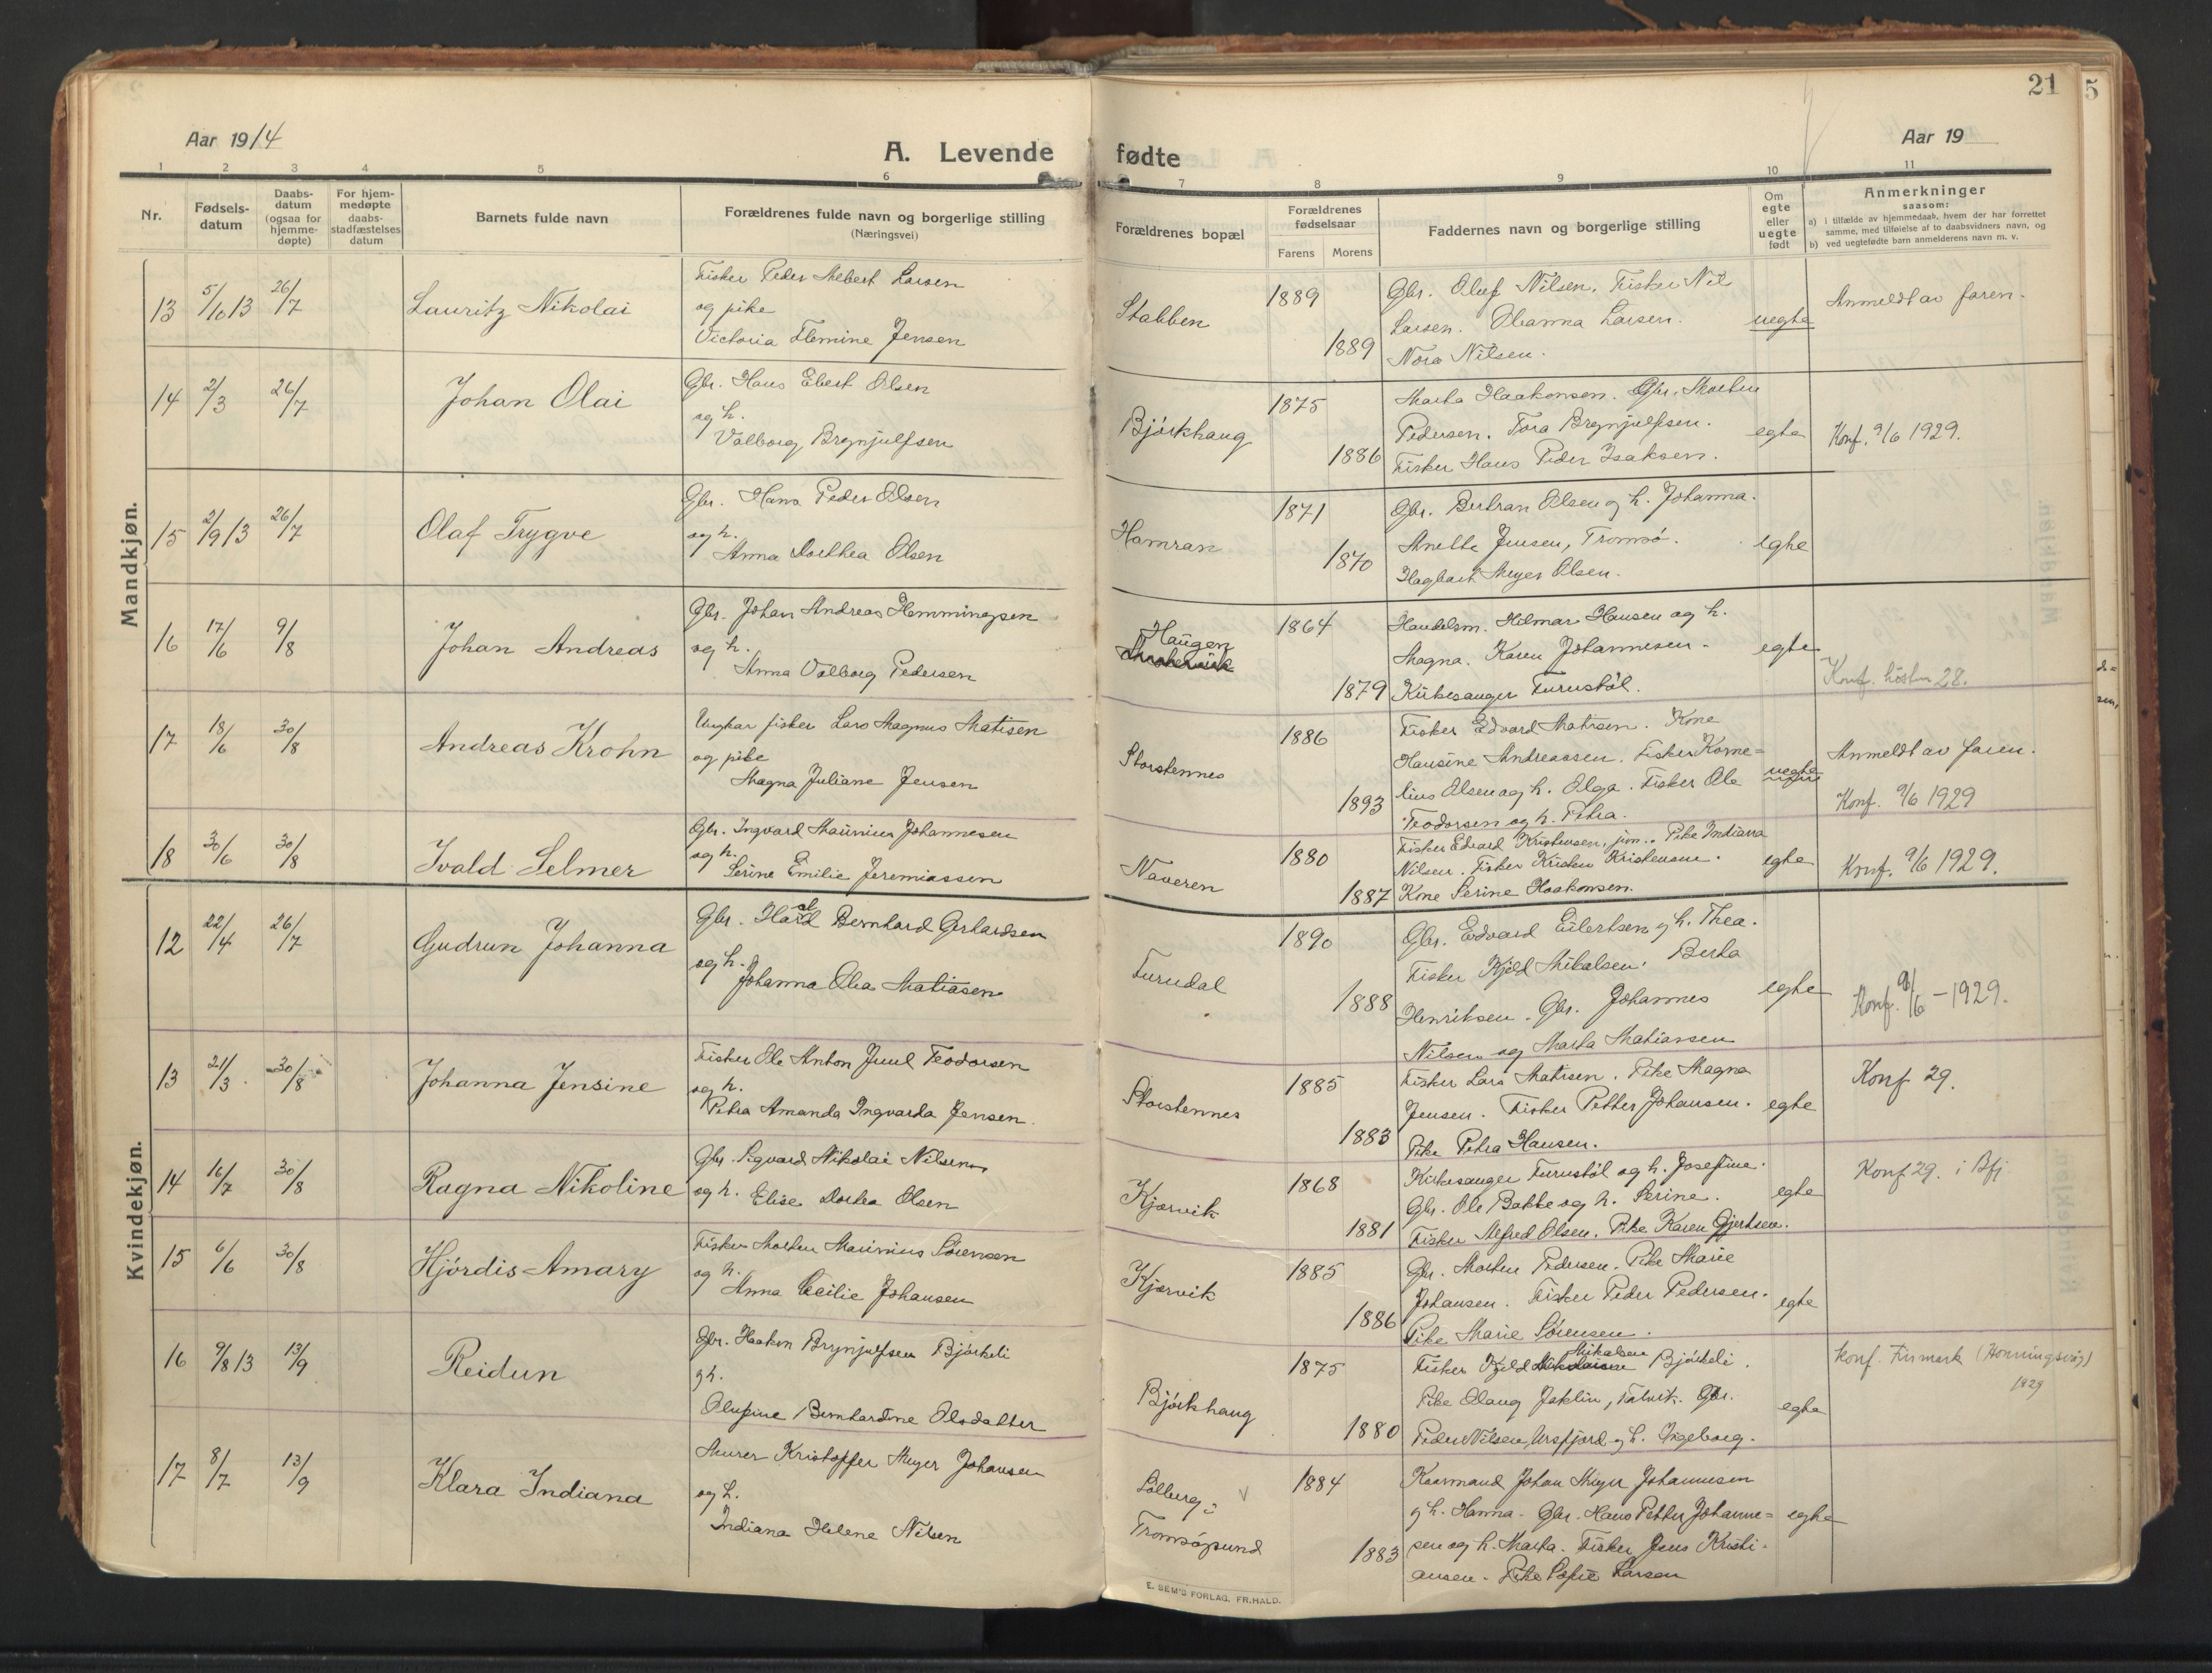 21
5
Aar 1914
A. Levende fødte
Aar 19
1 2 3 4 5 6 7 8 9 10 11
Nr.
Fødsels-
datum
Daabs-
datum
(ogsaa for
hjemme-
døpte)
For hjem-
medøpte
daabs-
stadfæstelses
datum
Barnets fulde navn
Forældrenes fulde navn og borgerlige stilling
(Næringsvei)
Forældrenes bopæl
Forældrenes
fødselsaar
Farens Morens
Faddernes navn og borgerlige stilling
Om
egte
eller
uegte
født
Anmerkninger
saasom:
a) i tilfælde av hjemmedaab, hvem der har forrettet
samme, med tilføielse af to daabsvidners navn, og
b) ved uegtefødte barn anmelderens navn m. v.
Mandkjøn.
13 5/10 13 26/7 Lauritz Nikolai
Fisker Peder Albert Larsen
og pike
Victoria Flemine Jensen
Stabben 1889 1889
Gbr. Oluf Nilsen. Fisker Nil
Larsen. Olianna Larsen.
Nora Nilsen.
uegte
Anmeldt av faren.
14 2/3 26/7 Johan Olai
Gbr. Hans Ebert Olsen
og h.
Valborg Brynjulfsen
Bjórkhaug 1875 1886
Marta Haakonsen. Gbr. Morten
Pedersen. Tora Brynjulfsen.
Fisker Hans Peder Isaksen.
egte
Konf. 9/6 1929.
15 2/9 13 26/7 Olaf Trygve
Gbr. Hans Peder Olsen
og h.
Anna Dorthea Olsen
Hamran 1871 1870
Gbr. Bertran Olsen og h. Johanna.
Anette Jensen, Tromsó.
Hagbart Meyer Olsen.
egte
16 17/6 9/8 Johan Andreas
Gbr. Johan Andreas Hemmingsen
og h.
Anna Valborg Pedersen
Haugen
1864 1879
Handelsm. Hilmar Hansen og h.
Magna. Karen Johannesen.
Kirkesanger Furustól.
egte
Konf. hósten 28.
17 18/6 30/8 Andreas Krohn
Ungkar fisker Lars Magnus Matisen
og pike
Magna Juliane Jensen
Storstennes 1886 1893
Fisker Edvard Matisen. Kone
Hansine Andreassen. Fisker Korne=
lius Olsen og h. Olga. Fisker Ole
Teodorsen og h. Petra.
uegte
Anmeldt av faren.
Konf. 9/6 1929
18 30/6 30/8 Ivald Selmer
Gbr. Ingvard Maurius Johannesen
og h.
Serine Emilie Jeremiassen
Naveren 1880 1887
Fisker Edvard Kristensen, jun.. Pike Indiana
Nilsen. Fisker Kristen Kristensen.
Kone Serine Haakonsen.
egte
Konf. 9/6 1929.
Kvindekjøn.
12 22/4 26/7 Gudrun Johanna
Gbr. Harald Bernhard Gerhardsen
og h.
Johanna Olea Matiasen
Furudal 1890 1888
Gbr. Edvard Eilertsen og h. Thea.
Fisker Kjeld Mikalsen. Berta
Henriksen. Gbr. Johannes
Nilsen og Marta Matiassen
egte
Konf. 9/6 - 1929.
13 21/3 30/8 Johanna Jensine
Fisker Ole Anton Juul Teodorsen
og h.
Petra Amanda Ingvarda Jensen.
Storstennes 1885 1883
Fisker Lars Matisen. Pike Magna
Jensen. Fisker Petter Johansen.
Pike Petra Hansen.
egte
Konf 29.
14 16/7 30/8 Ragna Nikoline
Gbr. Sigvard Nikolai Nilsen
og h. Elise Dortea Olsen
Kjærvik 1868 1881
Kirkesanger Furustól og h. Josefine.
Gbr. Ole Bakke og h. Serine.
Fisker Alfred Olsen. Pike Karen Gjertsen.
egte
Konf 29. i Bfj
15 6/6 30/8 Hjórdis Amary
Fisker Morten Maurius Sórensen
og h.
Anna Cecilie Johansen
Kjærvik 1885 1886
Gbr. Morten Pedersen. Pike Marie
Johansen. Fisker Peder Pedersen.
Pike Marie Sórensen.
egte
16 9/8 13 13/9 Reidun
Gbr. Haakon Brynjulfsen Bjórkli
og h.
Olufine Bernhardine Olsdatter
Bjórkhaug 1875 1880
Fisker Kjeld Mikalsen Bjórkeli.
Pike Olaug Jaklin, Talvik. Gbr.
Peder Nilsen, Ursfjord og h. Ingeborg.
egte
konf. Finmark (Honningsvåg)
1929
17 8/7 13/9 Klara Indiana
Murer Kristoffer Meyer Johansen
og h.
Indiana Helene Nilsen
Solberg,
Tromsósund 1884 1883
Kaarmand Johan Meyer Johannesen
og h. Hanna. Gbr. Hans Petter Johanne=
sen og h. Marta. Fisker Jens Kristi-
ansen. Pike Sofie Larsen
egte
E. SEM'S FORLAG, FR.HALD.